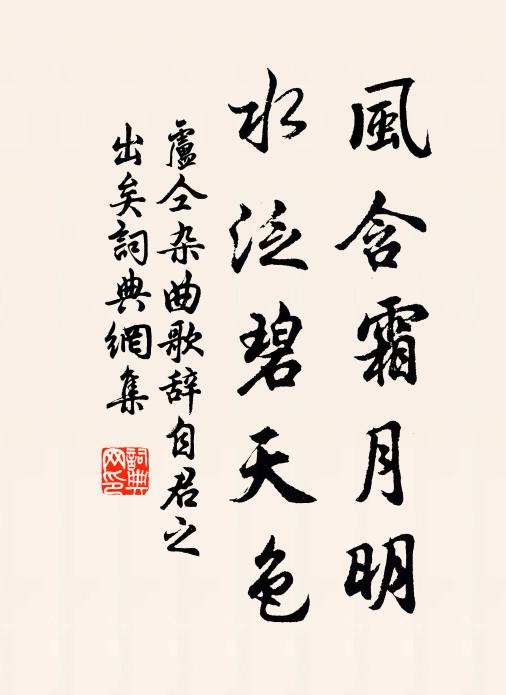 風含霜月明
水泛碧天色
盧仝杂曲歌辞自君之
出矣詞典網集
詞典
网印